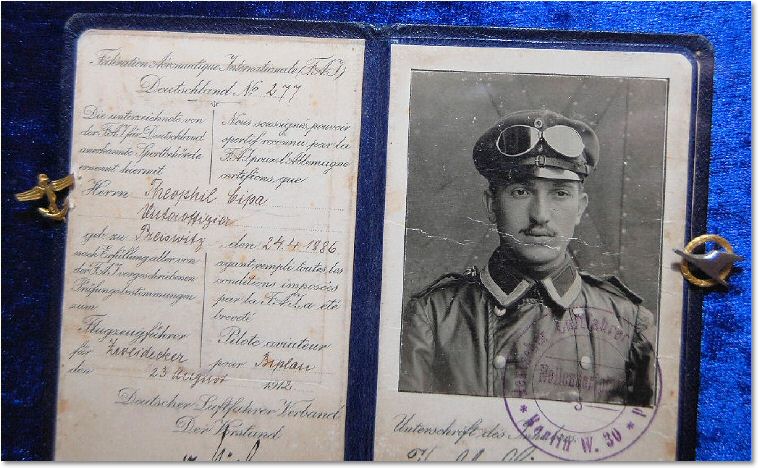 Fédération Aéronautique Internationale (F.A.I.)
Deutschland No 277
Die unterzeichnete von
der F.A.I. für Deutschland
anerkannte Sportbehörde
ernennt hiermit
Nous soussignés, pouvoir
sportif reconnu par la
F.A.I. pour l'Allemagne
certifions, que
Herrn Theophil Cipa
Unteroffizier
geb. zu Preiswitz, den 24.4.1886
nach Erfüllung aller von
der F.A.I. vorgeschriebenen
Prüfungsbestimmungen
zum
Flugzeugführer
für Zweidecker
den 23 August 1912
ayant rempli toutes les
conditions imposées
par la F.A.I. a été
breveté
Pilote aviateur
pour Biplan
Deutscher Luftfahrer Verband
Der Vorstand
Luftfahrer
* Berlin W. 30 *
Unterschrift des Inhabers